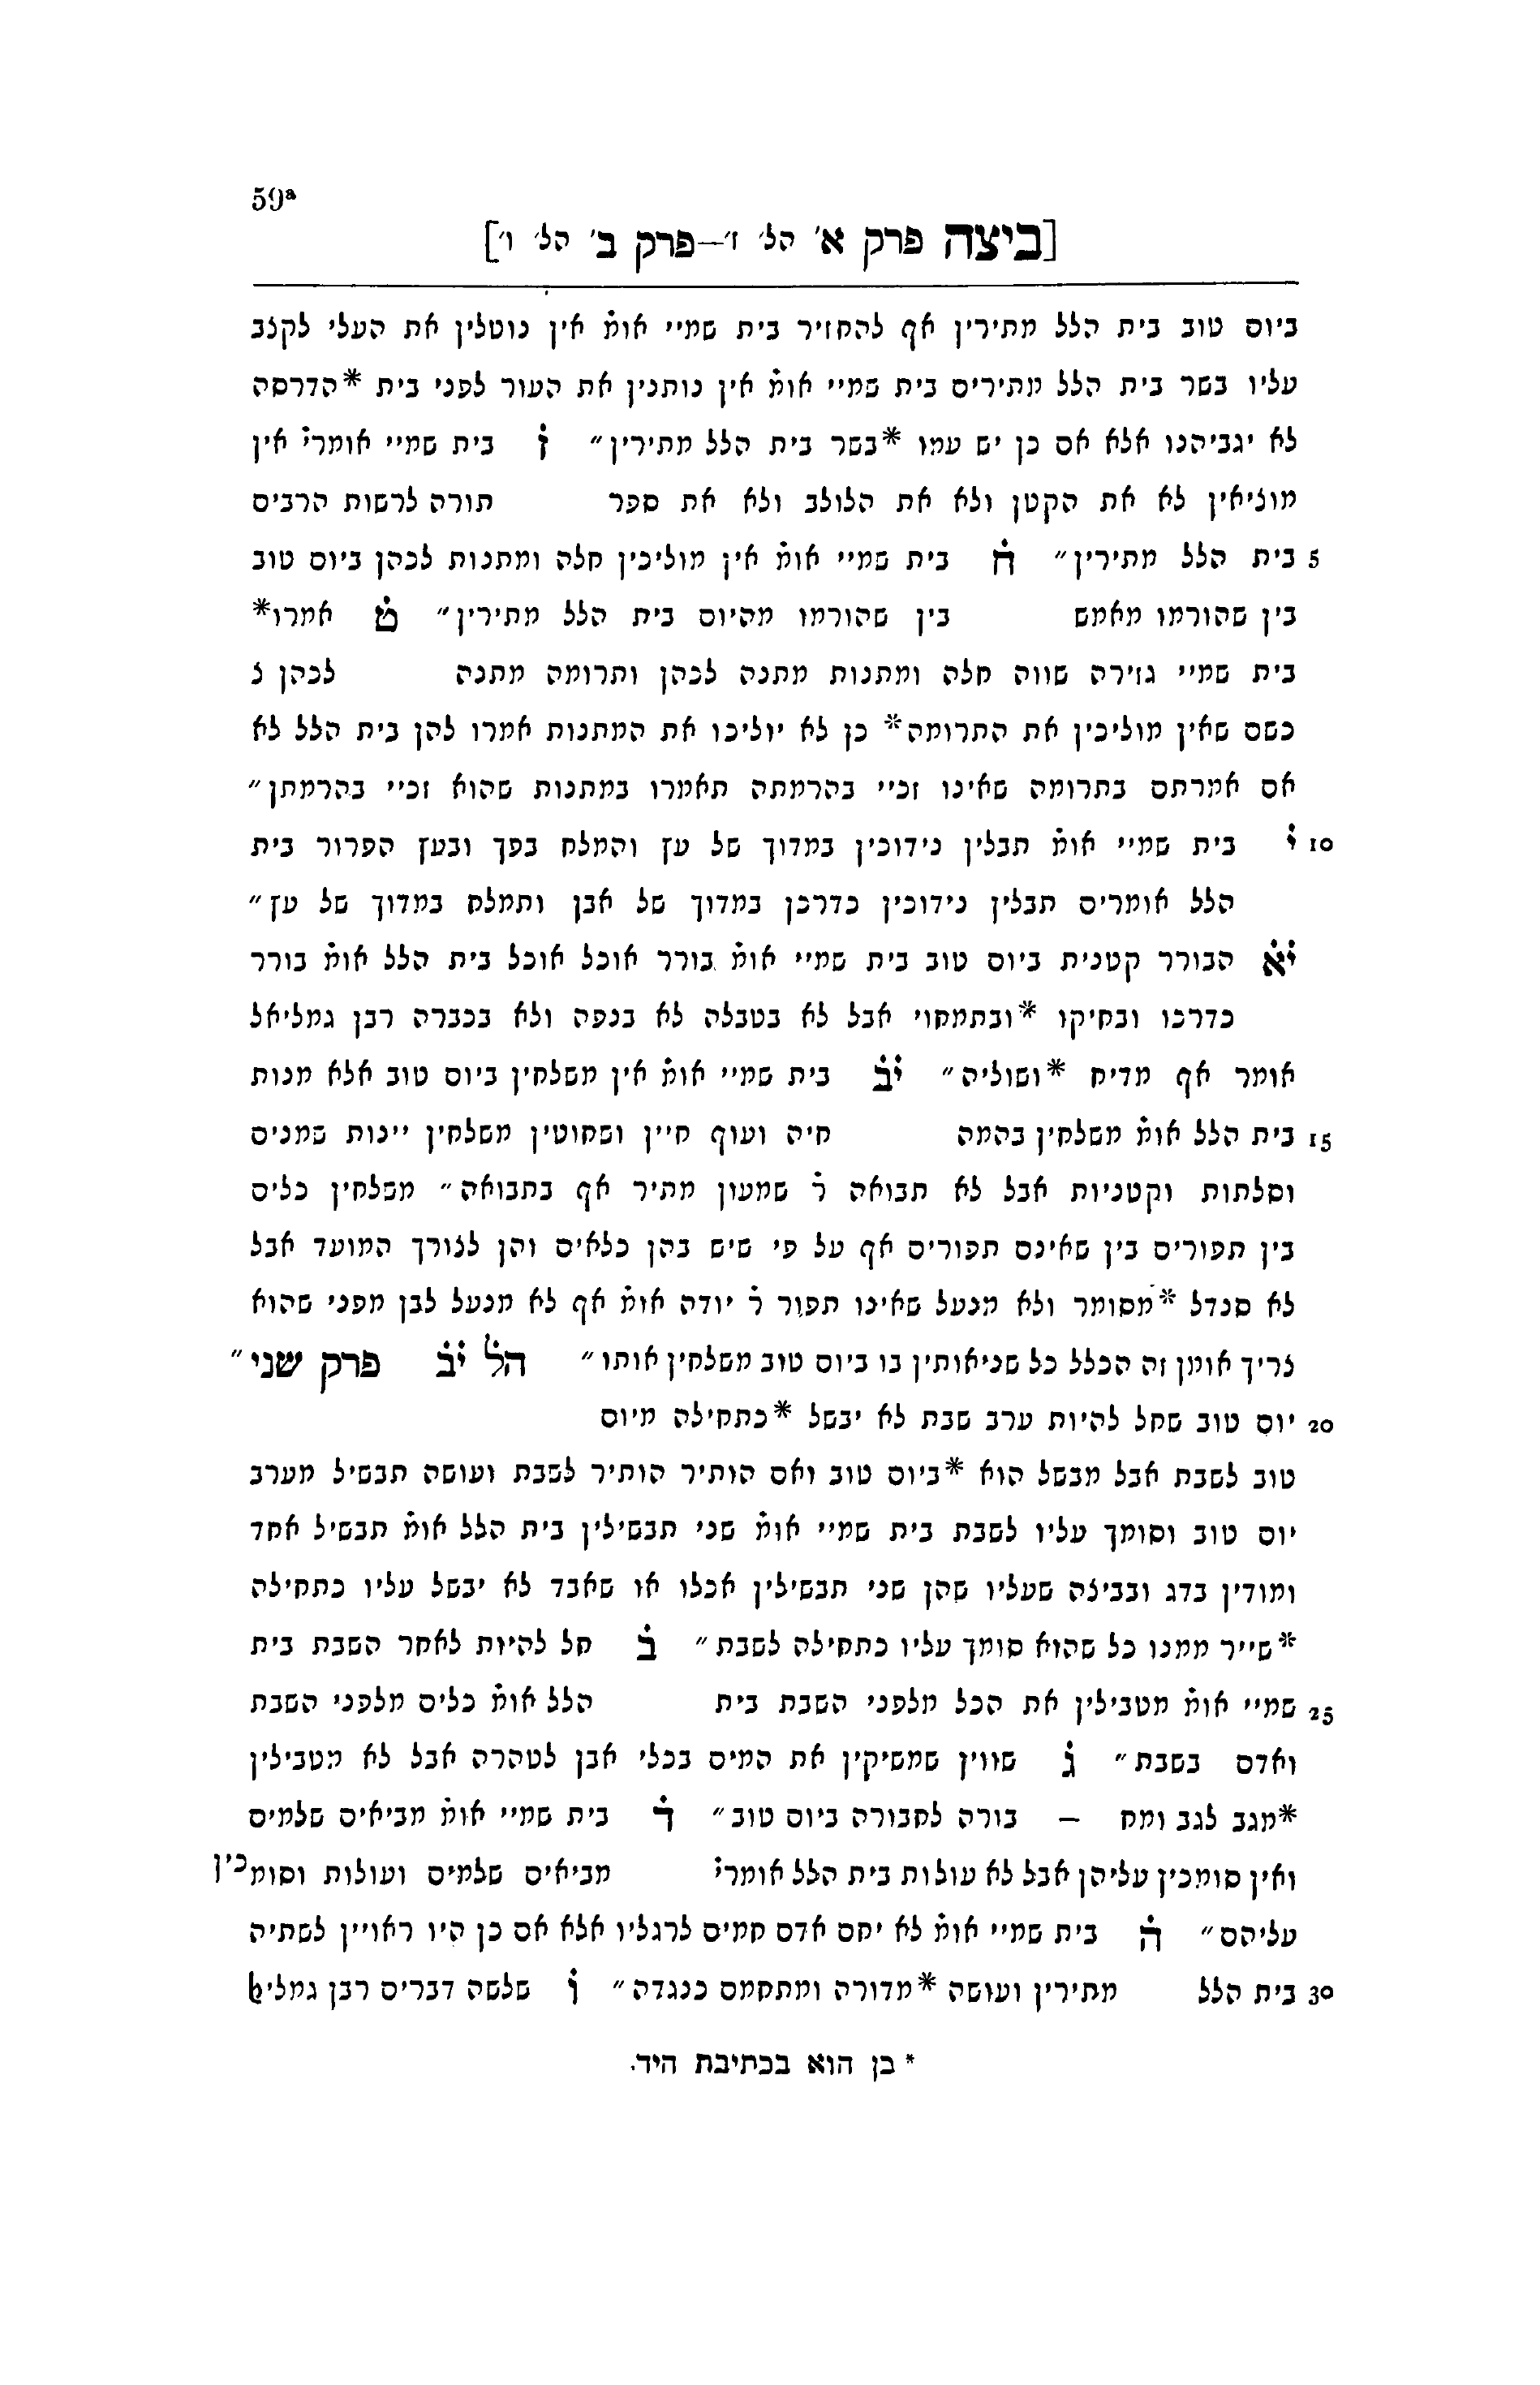 59ª
[ביצה פרק א׳ הל׳ ז׳—פרק ב׳ הל׳ ו׳]
ביום טוב בית הלל מתירין אף להחזיר בית שמיי אומ̇ אין נוטלין את העלי לקצב
עליו בשר בית הלל מתירים בית שמיי אומ̇ אין נותנין את העור לפני בית *הדרסה
לא יגביהנו אלא אם כן יש עמו *בשר בית הלל מתירין״ ז̇ בית שמיי אומרי̇ אין
מוציאין לא את הקטן ולא את הלולב ולא את ספר תורה לרשות הרבים
5 בית הלל מתירין״ ח̇ בית שמיי אומ̇ אין מוליכין חלה ומתנות לכהן ביום טוב
בין שהורמו מאמש בין שהורמו מהיום בית הלל מתירין״ ט̇ אמרו*
בית שמיי גזירה שווה חלה ומתנות מתנה לכהן ותרומה מתנה לכהן צ
כשם שאין מוליכין את התרומה* כן לא יוליכו את המתנות אמרו להן בית הלל לא
אם אמרתם בתרומה שאינו זכיי בהרמתה תאמרו במתנות שהוא זכיי בהרמתן״
10 י̇ בית שמיי אומ̇ תבלין נידוכין במדוך של עץ והמלח בפך ובעץ הפרור בית
הלל אומרים תבלין נידוכין כדרכן במדוך של אבן ותמלח במדוך של עץ״
י̇א̇ הבורר קטנית ביום טוב בית שמיי אומ̇ בורר אוכל אוכל בית הלל אומ̇ בורר
כדרכו ובחיקו *ובתמחוי אבל לא בטבלה לא בנפה ולא בכברה רבן גמליאל
אומר אף מדיח *ושוליה״ י̇ב̇ בית שמיי אומ̇ אין משלחין ביום טוב אלא מנות
15 בית הלל אומ̇ משלחין בהמה חיה ועוף חיין ושחוטין משלחין יינות שמנים
וסלתות וקטניות אבל לא תבואה ר̇ שמעון מתיר אף בתבואה״ משלחין כלים
בין תפורים בין שאינם תפורים אף על פי שיש בהן כלאים והן לצורך המועד אבל
לא סנדל *מסומר ולא מנעל שאינו תפור ר̇ יודה אומ̇ אף לא מנעל לבן מפני שהוא
צריך אומן זה הכלל כל שניאותין בו ביום טוב משלחין אותו״ הל̇ י̇ב̇ פרק שני״
20 יום טוב שחל להיות ערב שבת לא יבשל *כתחילה מיום
טוב לשבת אבל מבשל הוא *ביום טוב ואם הותיר הותיר לשבת ועושה תבשיל מערב
יום טוב וסומך עליו לשבת בית שמיי אומ̇ שני תבשילין בית הלל אומ̇ תבשיל אחד
ומודין בדג ובביצה שעליו שהן שני תבשילין אכלו או שאבד לא יבשל עליו כתחילה
*שייר ממנו כל שהוא סומך עליו כתחילה לשבת״ ב̇ חל להיות לאחר השבת בית
25 שמיי אומ̇ מטבילין את הכל מלפני השבת בית הלל אומ̇ כלים מלפני השבת
ואדם בשבת״ ג̇ שווין שמשיקין את המים בכלי אבן לטהרה אבל לא מטבילין
*מגב לגב ומח – בורה לחבורה ביום טוב״ ד̇ בית שמיי אומ̇ מביאים שלמים
ואין סומכין עליהן אבל לא עולות בית הלל אומרי̇ מביאים שלמים ועולות וסומכין
עליהם״ ה̇ בית שמיי אומ̇ לא יחם אדם חמים לרגליו אלא אם כן היו ראויין לשתיה
30 בית הלל מתירין ועושה *מדורה ומתחמם כנגדה״ ו̇ שלשה דברים רבן גמליﭏ
* כן הוא בכתיבת היד.